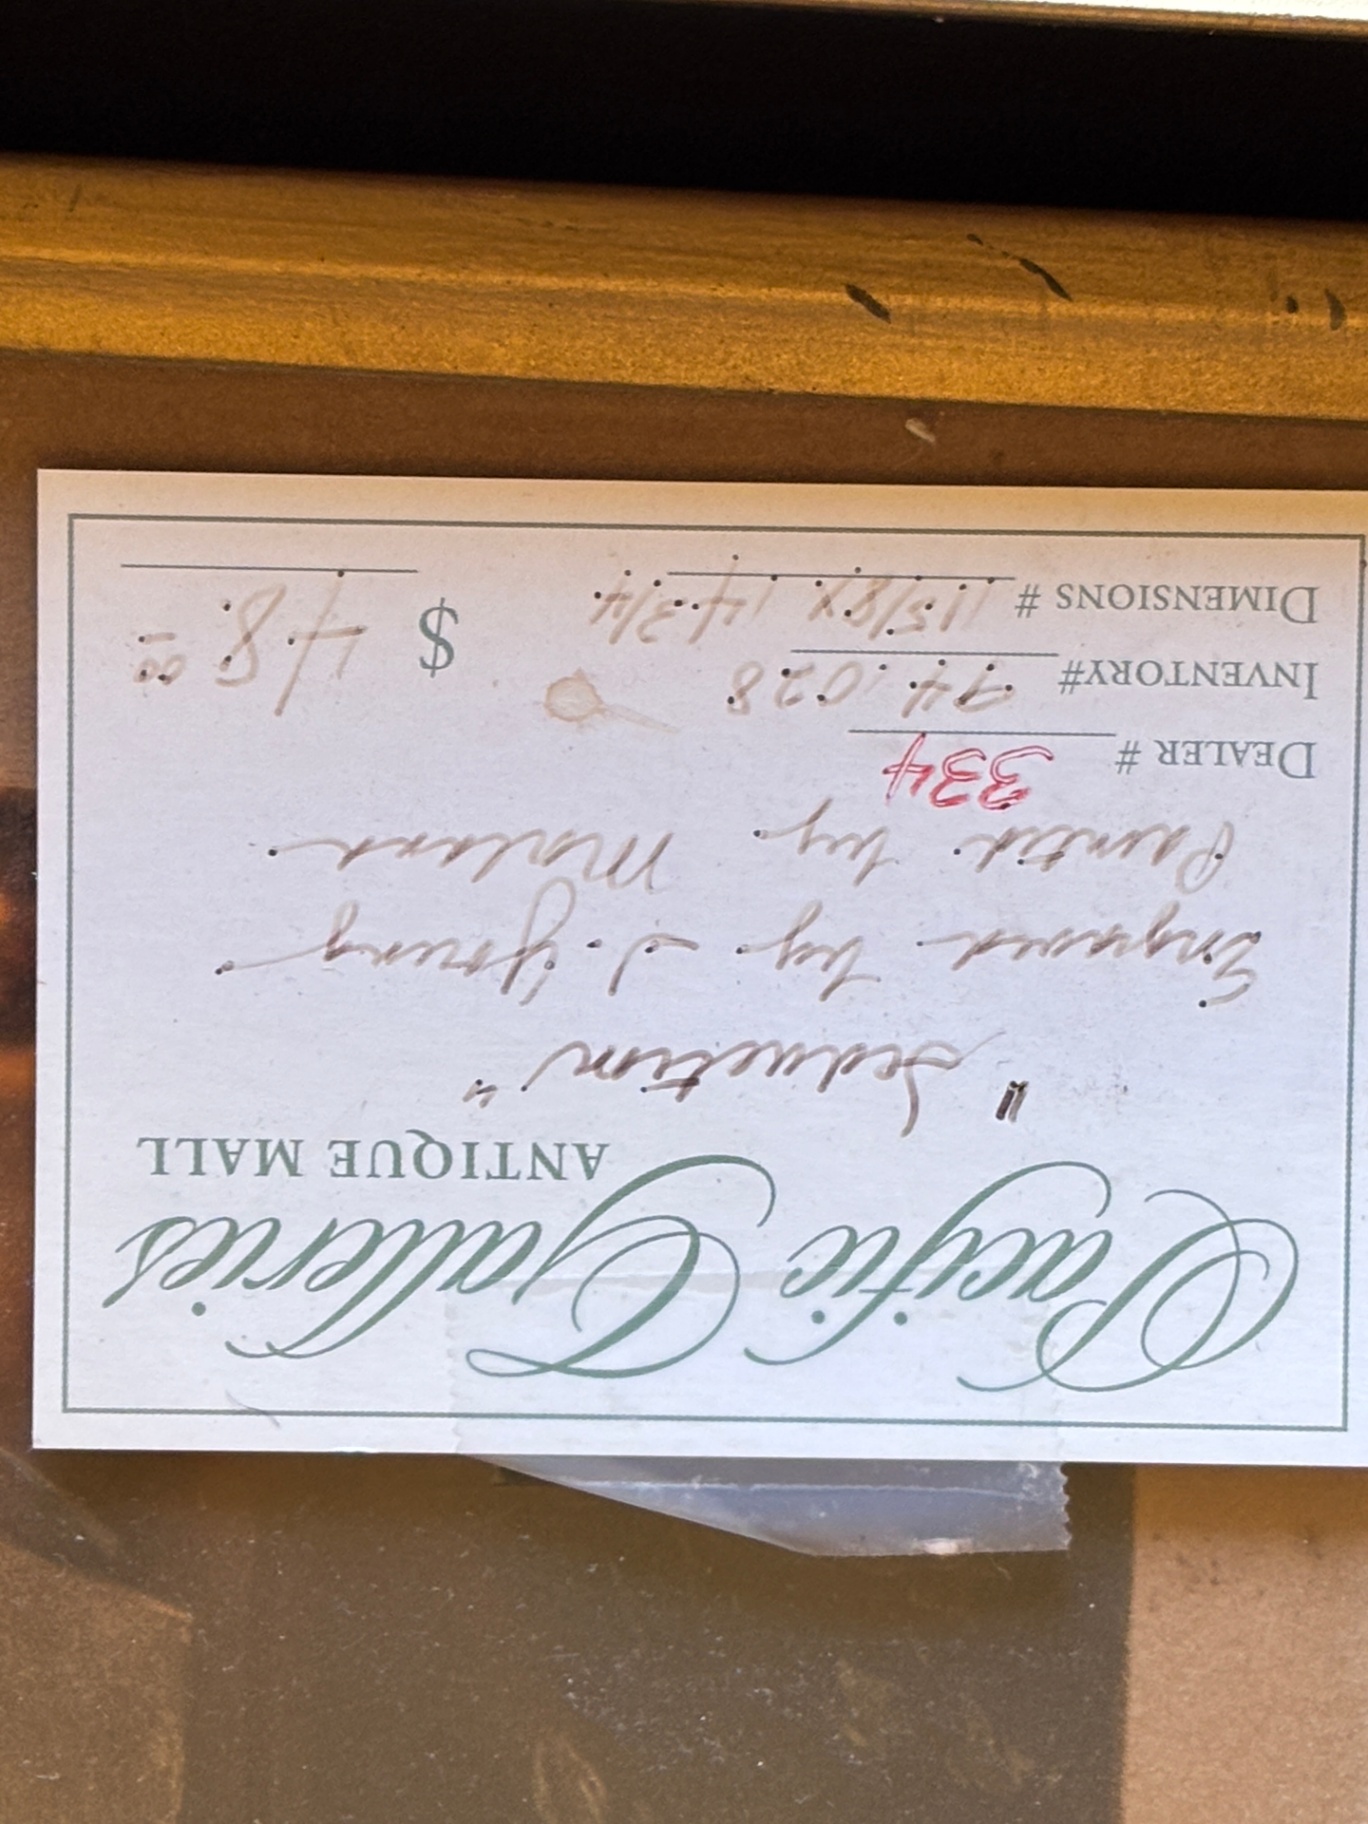 Pacific Galleries
ANTIQUE MALL
"Seduction"
Engraved by J. Young
Painted by Morland
DEALER # 334
INVENTORY# 94.028
DIMENSIONS # 11 5/8 X 14 3/4
$ 48.00